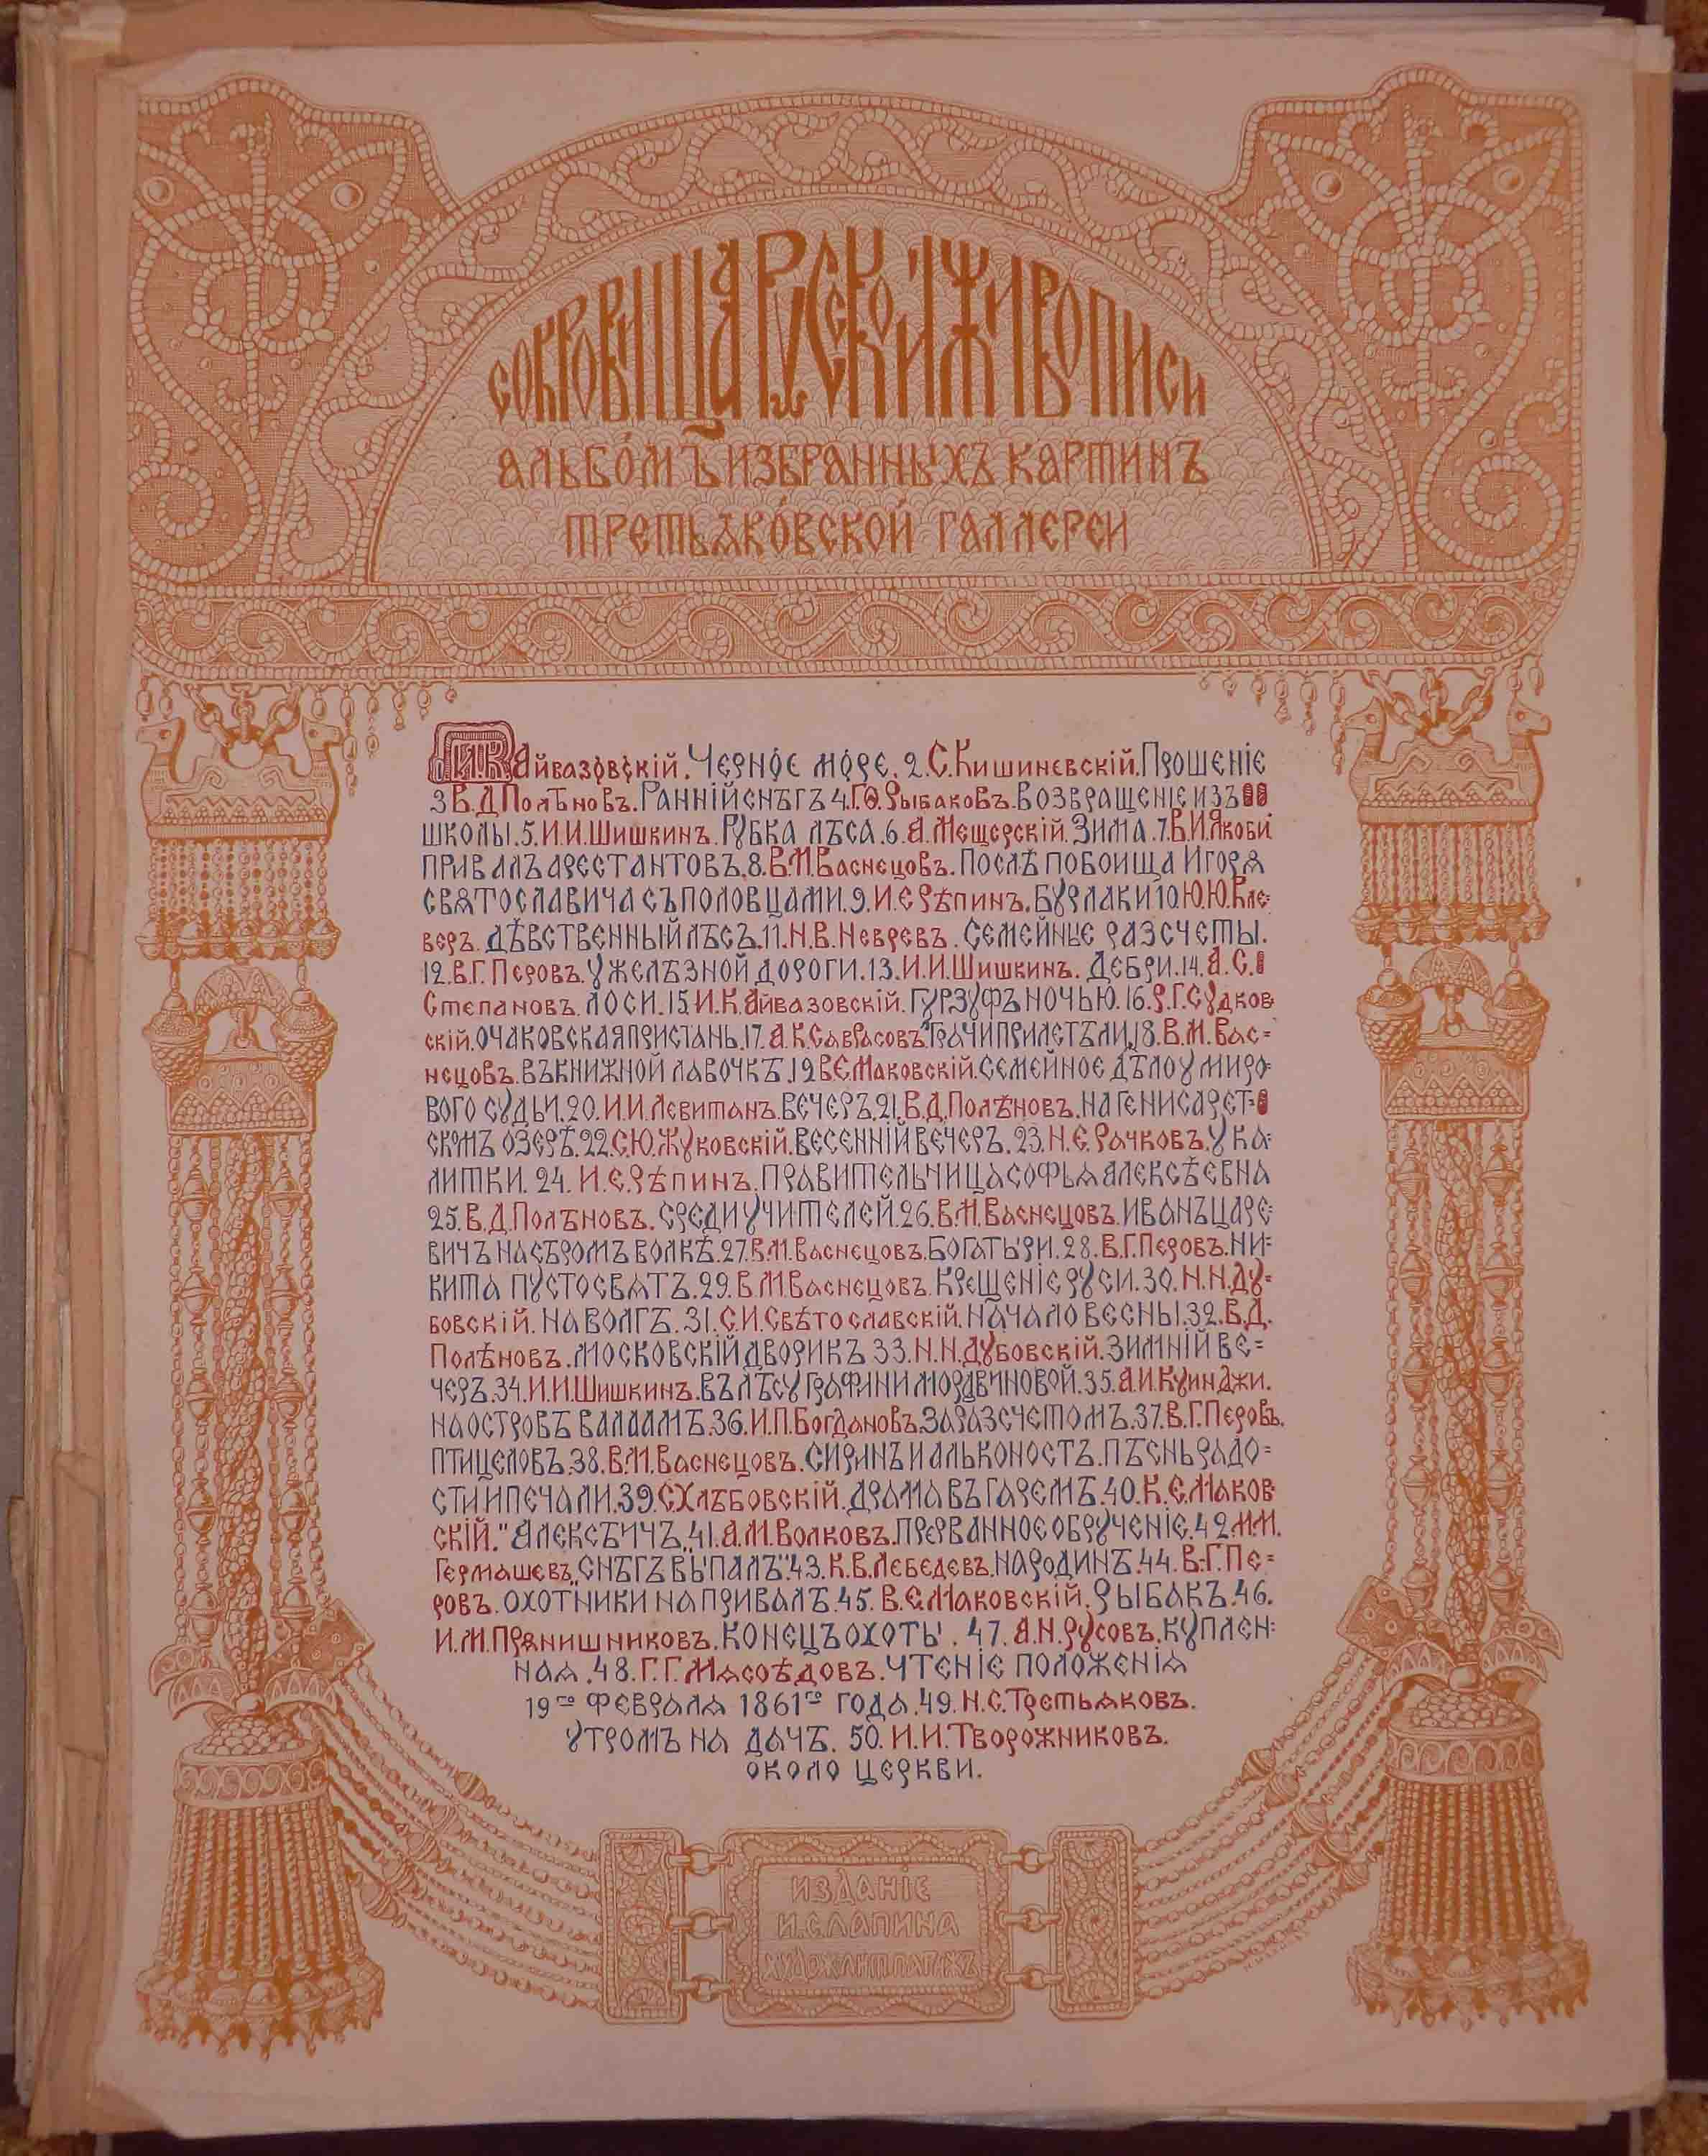 СОКРОВИЩА РУССКОЙ ЖИВОПИСИ
АЛЬБО́МЪ ИЗБРАННЫХЪ КАРТИНЪ
ТРЕТЬЯКО́ВСКОЙ ГАЛЛЕРЕИ
И.К. Айвазовскій. Черное море. 2. С. Кишиневскій. Прошеніе
3 В. Д. Полѣновъ. Ранній снѣгъ 4. Г. Ѳ. Рыбаковъ. Возвращеніе изъ
школы. 5. И. И. Шишкинъ. Рубка лѣса. 6. А. Мещерскій. Зима. 7. В. И. Якоби
Привалъ арестантовъ. 8. В. М. Васнецовъ. Послѣ побоища Игоря
Святославича съ половцами. 9. И. Е Рѣпинъ. Бурлаки 10. Ю. Ю. Кле-
веръ. Дѣвственный лѣсъ. 11. Н. В. Невревъ. Семейные разсчеты.
12. В. Г. Перовъ. У желѣзной дороги. 13. И. И. Шишкинъ. Дебри. 14. А. С.
Степановъ. Лоси. 15. И. К. Айвазовскій. Гурзуфъ ночью. 16. Р. Г. Судков
скій. Очаковская пристань. 17. А. К. Саврасовъ "Грачи прилетѣли„ 18. В. М. Вас=
нецовъ. Въ книжной лавочкѣ. 19 В Е. Маковскій. Семейное дѣло у миро-
вого судьи. 20. И. И. Левитанъ. Вечеръ. 21. В. Д. Полѣновъ. На Генисарет-
скомъ озерѣ. 22. С. Ю. Жуковскій. Весенній вечеръ. 23. Н. Е. Рачковъ. У ка-
литки. 24. И. Е. Рѣпинъ. Правительница Софья Алексѣевна
25. В. Д. Полѣновъ. Среди учителей. 26. В. М. Васнецовъ. Иванъ Царе-
вичъ на сѣромъ волкѣ. 27. В. М. Васнецовъ. Богатыри. 28. В. Г. Перовъ. Ни=
кита Пустосвятъ. 29. В. М. Васнецовъ. Крещеніе Руси. 30. Н. Н. Ду=
бовскій. На Волгѣ. 31. С. И. Свѣтославскій. Начало весны. 32. В. Д.
Полѣновъ. Московскій дворикъ 33. Н. Н. Дубовскій. Зимній ве=
черъ. 34. И. И. Шишкинъ. Въ лѣсу графини Мордвиновой. 35. А. И. Куинджи.
На островѣ Валаамѣ. 36. И. П. Богдановъ. За разсчетомъ. 37. В. Г. Перовъ.
Птицеловъ. 38. В. М. Васнецовъ. Сиринъ и Альконостъ. Пѣснь радо=
сти и печали. 39. С Хлѣбовскій. Драма въ гаремѣ. 40. К. Е. Маков
скій. "Алексѣичъ„. 41. А. М. Волковъ. Прерванное обрученіе. 42. М. М.
Гермашевъ „Снѣгъ выпалъ". 43. К. В. Лебедевъ. На родинѣ. 44. В. Г. Пе=
ровъ. Охотники на привалѣ. 45. В. Е. Маковскій. Рыбакъ. 46.
И. М. Прянишниковъ. Конецъ охоты. 47. А. Н. Русовъ. Куплен=
ная. 48. Г. Г. Мясоѣдовъ. Чтеніе положенія
19го февраля 1861го года. 49. Н. С. Третьяковъ.
Утромъ на дачѣ. 50. И. И. Творожниковъ.
Около церкви.
ИЗДАНІЕ
И. С. ЛАПИНА
ХУДОЖ ЛИТ ПАРИЖЪ